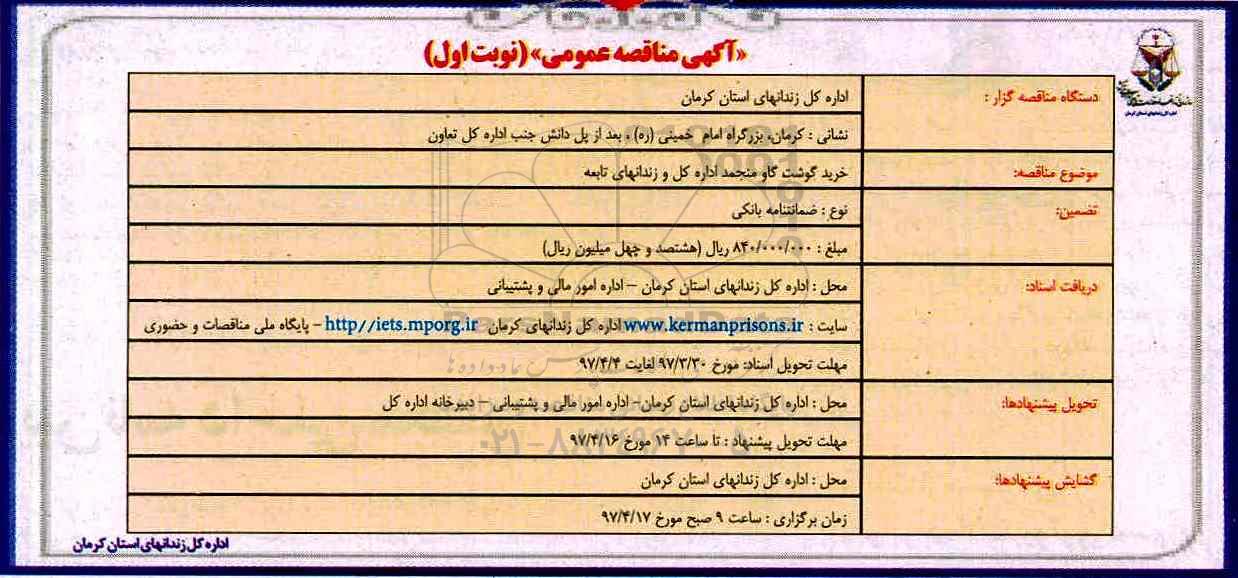 «آگهی مناقصه عمومی» (نوبت اول)
دستگاه مناقصه گزار :
اداره کل زندانهای استان کرمان
نشانی : کرمان، بزرگراه امام خمینی (ره) ، بعد از پل دانش جنب اداره کل تعاون
موضوع مناقصه:
خرید گوشت گاو منجمد اداره کل و زندانهای تابعه
تضمین:
نوع : ضمانتنامه بانکی
مبلغ : ۸۴۰/۰۰۰/۰۰۰ ریال (هشتصد و چهل میلیون ریال)
دریافت اسناد:
محل : اداره کل زندانهای استان کرمان – اداره امور مالی و پشتیبانی
سایت : www.kermanprisons.ir اداره کل زندانهای کرمان http//iets.mporg.ir – پایگاه ملی مناقصات و حضوری
مهلت تحویل اسناد: مورخ ۹۷/۳/۳۰ لغایت ۹۷/۴/۴
تحویل پیشنهادها:
محل : اداره کل زندانهای استان کرمان- اداره امور مالی و پشتیبانی – دبیرخانه اداره کل
مهلت تحویل پیشنهاد : تا ساعت ۱۴ مورخ ۹۷/۴/۱۶
گشایش پیشنهادها:
محل : اداره کل زندانهای استان کرمان
زمان برگزاری : ساعت ۹ صبح مورخ ۹۷/۴/۱۷
اداره کل زندانهای استان کرمان
اداره کل زندانهای استان کرمان
۰۲۱-۸۸۳۴۹۶۷۰-۵